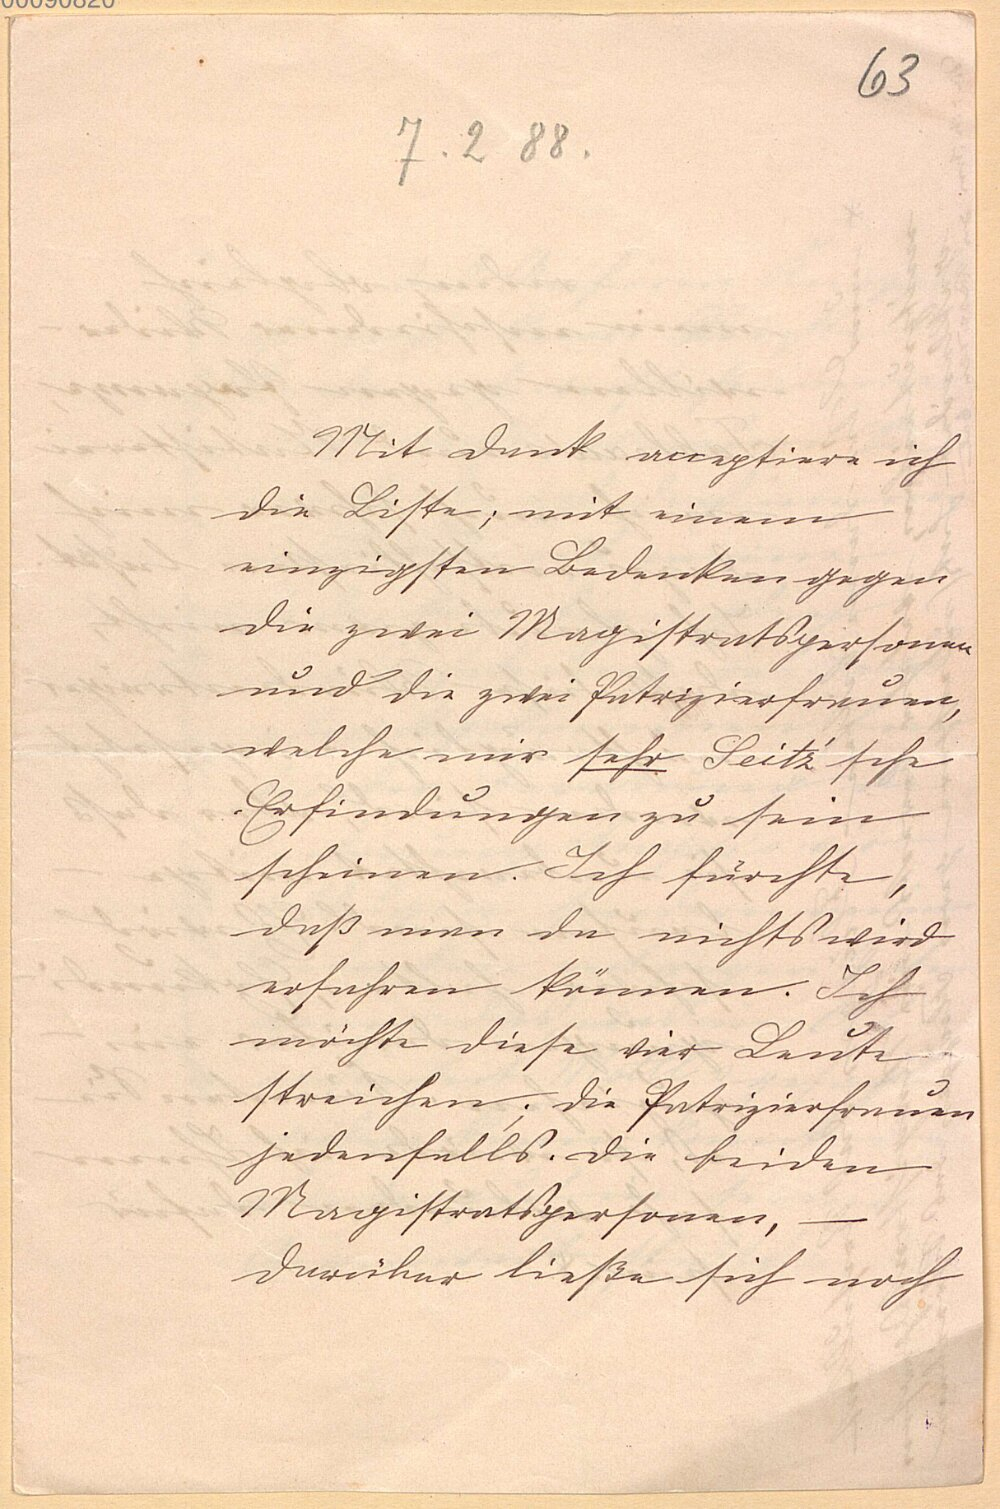 00090820
63
7. 2 88.
Mit Dank acceptiere ich
die Liste; mit einem
einzigsten Bedenken gegen
die zwei Magistratspersonen
und die zwei Patrizierfrauen,
welche mir sehr Seitz'sche
Erfindungen zu sein
scheinen. Ich fürchte,
daß man da nichts wird
erfahren können. Ich
möchte diese vier Leute
streichen; die Patrizierfrauen
jedenfalls. Die beiden
Magistratspersonen, —
darüber ließe sich noch